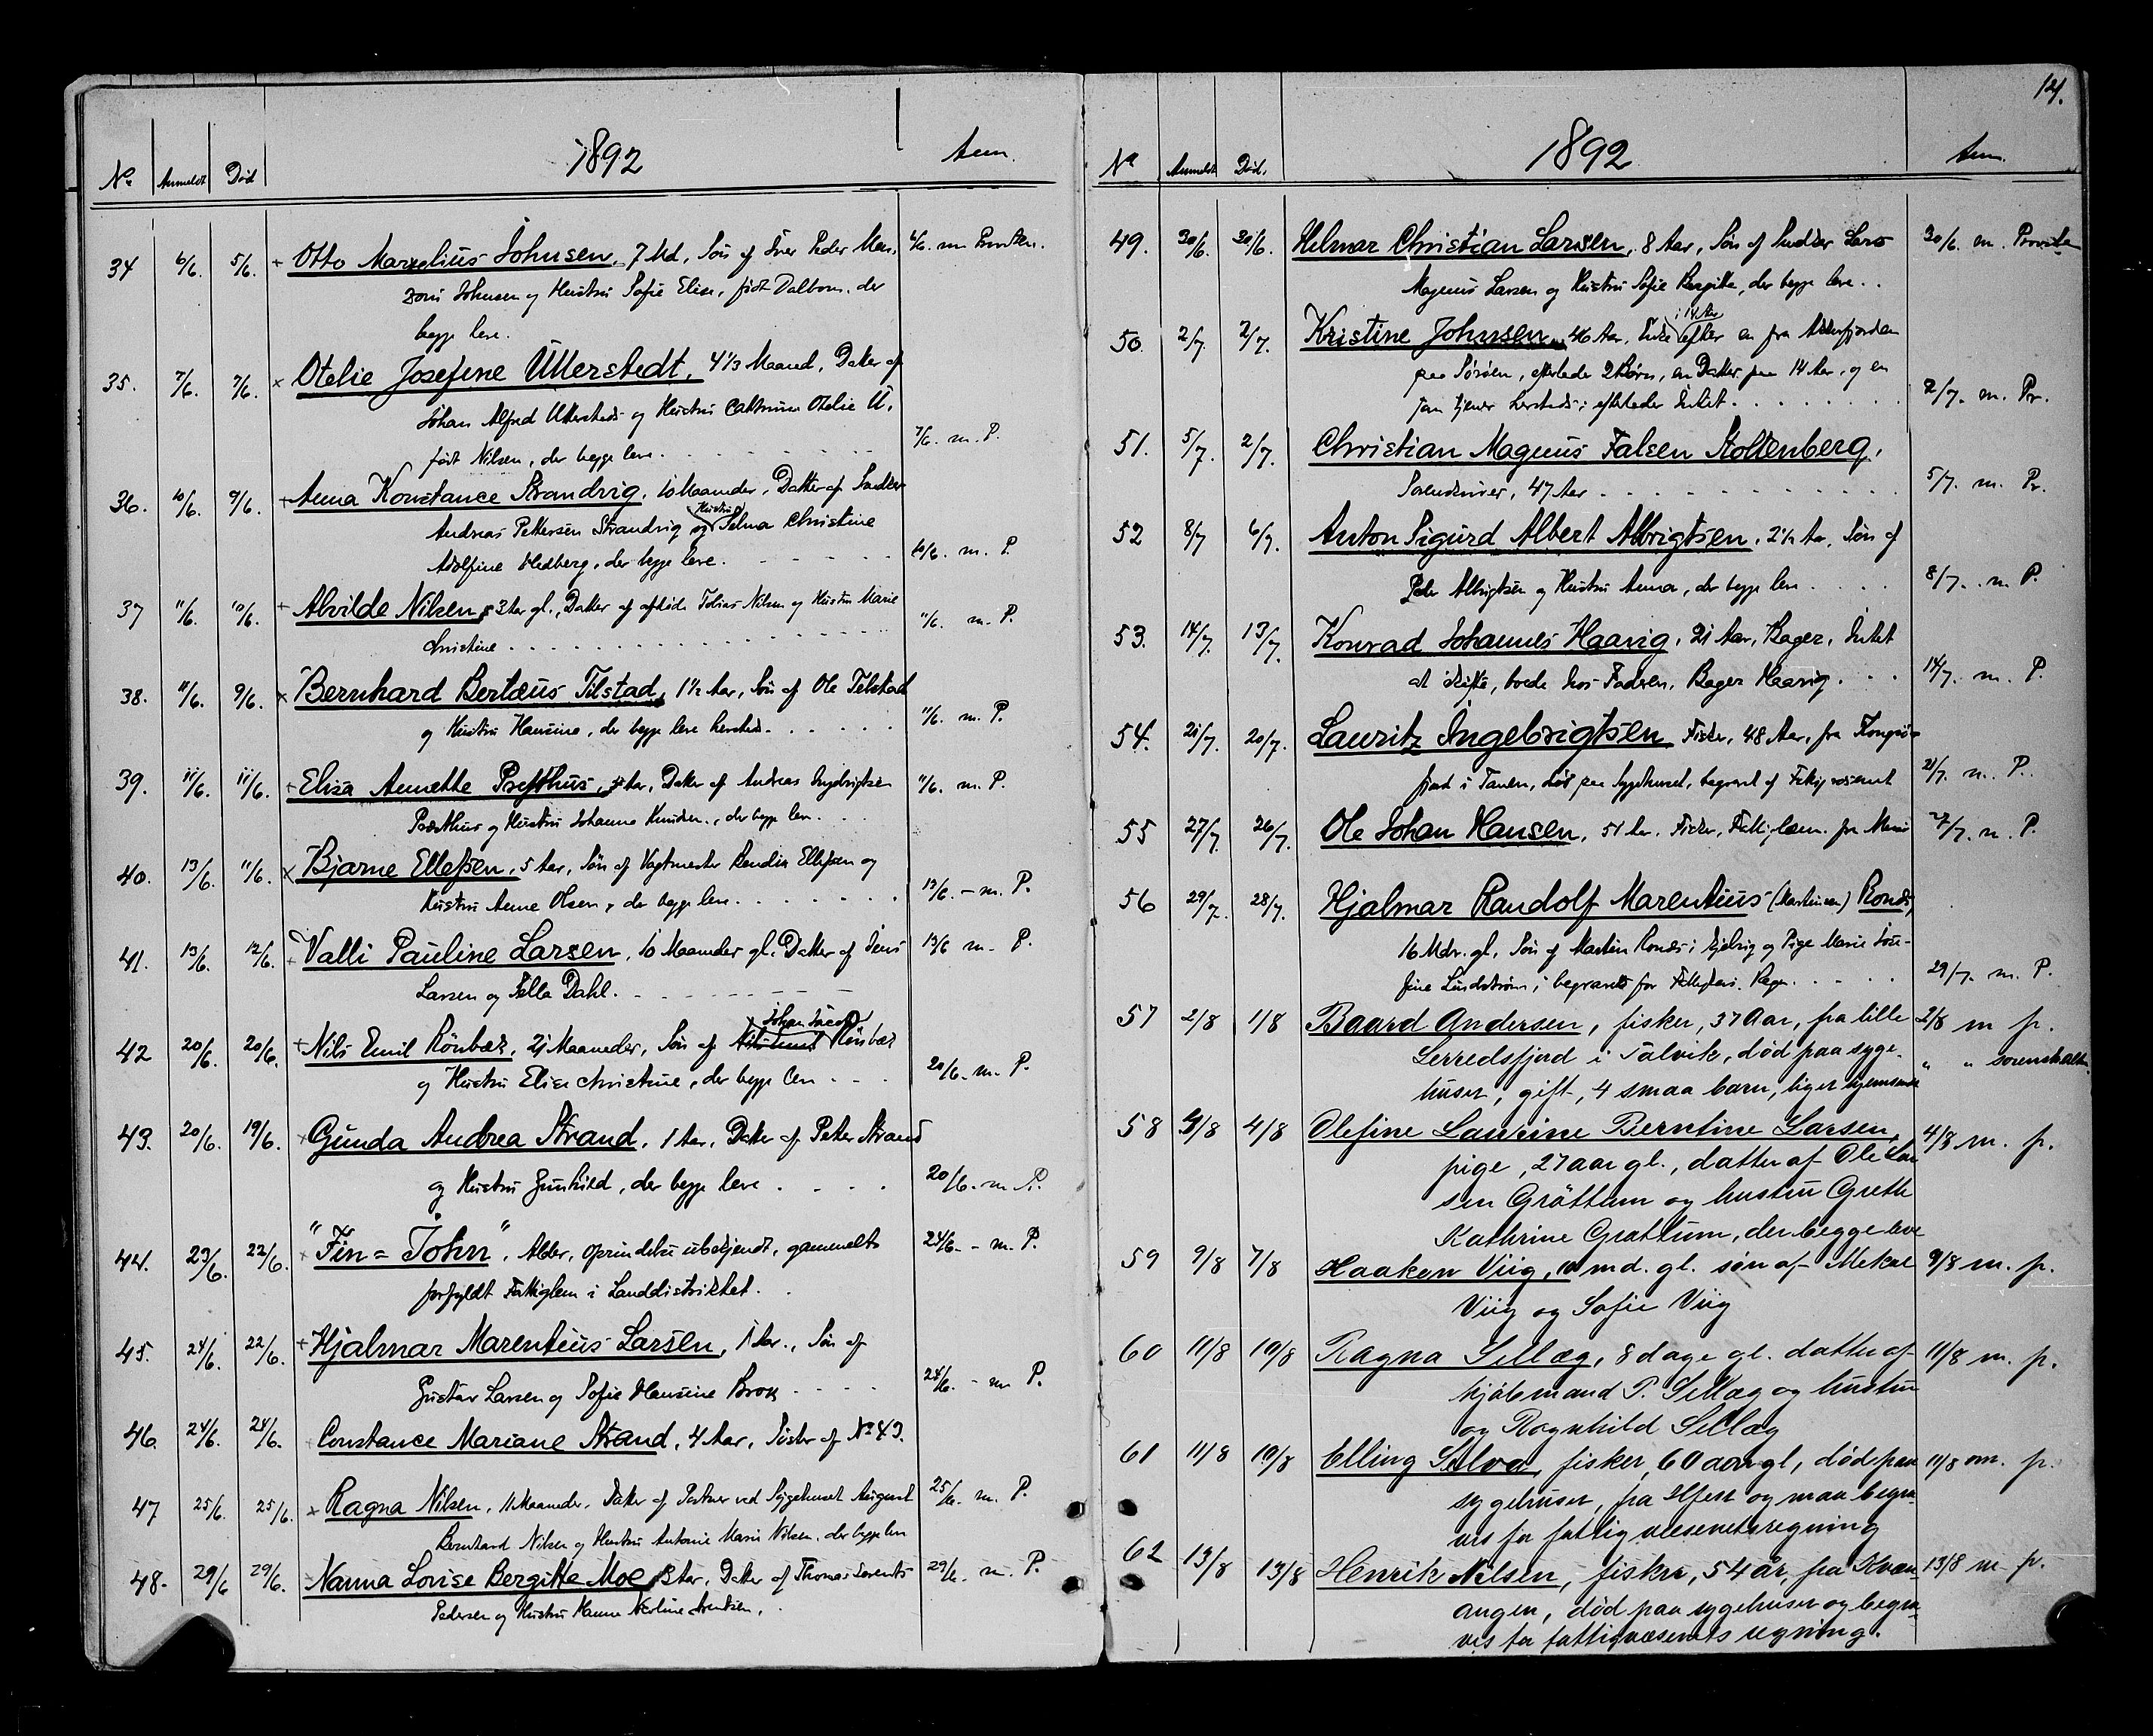 1892
Anm.
No Anmeldt Død
34 6/6. 5/6. Otto Marselius Johnsen, 7 Md, Søn af Iver Peder Men-
6/6. m
Johnsen og Hustru Sofie Elise, født Dalbom. der
begge leve.
35. 7/6. 7/6. x Otelie Josefine Ullerstedt, 4 1/3 Maaned, Datter af
Johan Alfred Ullerstedt og Hustru Cathrine Otelie U.
født Nilsen, der begge leve.
7/6. m. P.
36. 10/6. 9/6. + Anna Konstance Strandvig, 10 Maaneder, Datter af
Hustru
Andreas Pettersen Strandvig og Selma Christine
Adolfine Hedberg, der begge leve.
10/6. m. P.
37 11/6. 10/6. + Alvilde Nilsen, 3 Aar gl., Datter af afdøde Tobias Nilsen og Hustru Marie
Christine
11/6. m. P.
38. 11/6. 9/6. x Bernhard Bertæus Tilstad, 1 1/2 Aar, Søn af Ole Tilstad
og Hustru Hansine, der begge leve hersteds.
11/6. m. P.
39. 11/6. 11/6. + Elisa Annette Præsthus, Aar, Datter af Andreas Ingebrigtsen
11/6. m. P.
Præsthus og Hustru Johanna Knudsen, der begge leve.
40. 13/6. 11/6. x Bjarne Ellefsen, 5 Aar, Søn af Vagtmester Ellefsen og
Hustru Anne Olsen, der begge leve.
13/6. - m. P.
41. 13/6. 12/6. + Valli Pauline Larsen, 10 Maaneder gl. Datter af Jens
13/6 m. P.
Larsen og Dahl.
42 20/6. 20/6. + Nils Emil Rönbæk, 21 Maaneder, Søn af Johan Jacob Rönbæk
og Hustru Elise Christine, der begge leve
20/6. m. P.
43. 20/6. 19/6. + Gunda Andrea Strand, 1 Aar, Datter af Peter Strand
og Hustru Gunhild, der begge leve
20/6. m P.
44. 23/6. 22/6. + "Fin = John", Alder, Oprindelse ubekjendt, gammelt
24/6. - m. P.
forfyldt Fattiglem i Landdistriktet.
45. 24/6. 22/6. + Hjalmar Marentius Larsen, 1 Aar., Søn af
Gustav Larsen og Sofie Hansine Brox
24/6. - m P.
46. 24/6. 24/6. Constance Mariane Strand, 4 Aar, Søster af No 43.
47 25/6. 25/6. x Ragna Nilsen, 11 Maaneder, Datter af Portner ved Sygehuset August
25/6. m. P.
Bernhard Nilsen og Hustru Antonie Marie Nilsen, der begge leve
48. 29/6 29/6. Nanna Lovise Bergitte Moe, 3 Aar, Datter af Thomas
29/6. m. P.
Pedersen og Hustru Hanna Nicoline Arentsen.
121.
1892
Anm.
No Anmeldt Død.
49. 30/6. 30/6. Helmar Christian Larsen, 8 Aar, Søn af Snedker Lars
30/6. m. Private
Magnus Larsen og Hustru Sofie Bergitte, der begge leve.
i 14 Aar
50. 2/7. 2/7. Kristine Johnsen, 46 Aar, Enke efter en fra
paa Sörøen, efterlader 2 Börn, en Datter paa 14 Aar, og en
som tjener hersteds; efterlader Intet.
2/7. m. Pr.
51. 5/7. 2/7. Christian Magnus Falsen Stoltenberg,
Sorenskriver, 47 Aar
5/7. m. Pr.
52 8/7 6/7. Anton Sigurd Albert Albrigtsen, 2 1/2 Aar, Søn af
Peder Albrigtsen og Hustru Anna, der begge leve
8/7. m P.
53. 14/7. 13/7. Konrad Johannes Haavig, 21 Aar, Bager, Intet
at skifte, boede hos Faderen, Bager Haavig.
14/7. m. P.
54. 21/7. 20/7. Lauritz Ingebrigtsen Fisker, 48 Aar, fra Kongsö-
fjord i Tanen, död paa Sygehuset, begravet af Fattigvæsenet
21/7. m. P.
55 27/7. 26/7. Ole Johan Hansen, 51 Aar, Fisker, Fattiglem. fra
27/7. m. P.
56 29/7. 28/7. Hjalmar Randolf Marentius (Martinsen) Ronds,
16 Mdr. gl. Søn af Martin og Pige Marie Jose-
fine Lindström; begraves for Fattigkas. Regn.
29/7. m. P.
57 2/8 1/8 Baard Andersen, fisker, 37 Aar, fra lille
2/8 m p.
Lerredsfjord i Talvik, død paa syge-
" " sorenskriveren
huset, gift, 4 smaa barn, liget hjemsendt
58 4/8 4/8 Olefine Laurine Berntine Larsen,
4/8 m. p.
pige, 27 aar gl., datter af Ole Lar
sen Gröttum og hustru Grethe
Kathrine Grøttum, der begge leve
59 9/8 7/8 Haakon Viig, 10 md. gl. søn af Mekal
9/8 m. p.
Viig og Sofie Viig
60 11/8 10/8 Ragna Sellæg, 8 dage gl. datter af
11/8 m. p.
kjöbmand P. Sellæg og hustru
og Ragnhild Sellæg
61 11/8 10/8 Elling Selvaa, fisker, 60 aar gl, død paa
11/8 m. p.
sygehuset, fra og maa begra-
ves for fattigvæsenets regning
62 13/8 13/8 Henrik Nilsen, fisker, 54 år, fra Kvæn-
13/8 m p.
angen, død paa sygehuset og begra-
ves for fattigvæsenets regning.